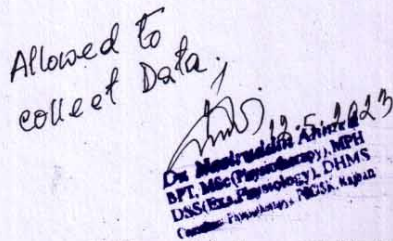 Allowed to
collect Data.
12.5.2023
Dr. Nasiruddin Ahmed
BPT, MSc (Physiotherapy), MPH
DSS (Exs. Physiology), DHMS